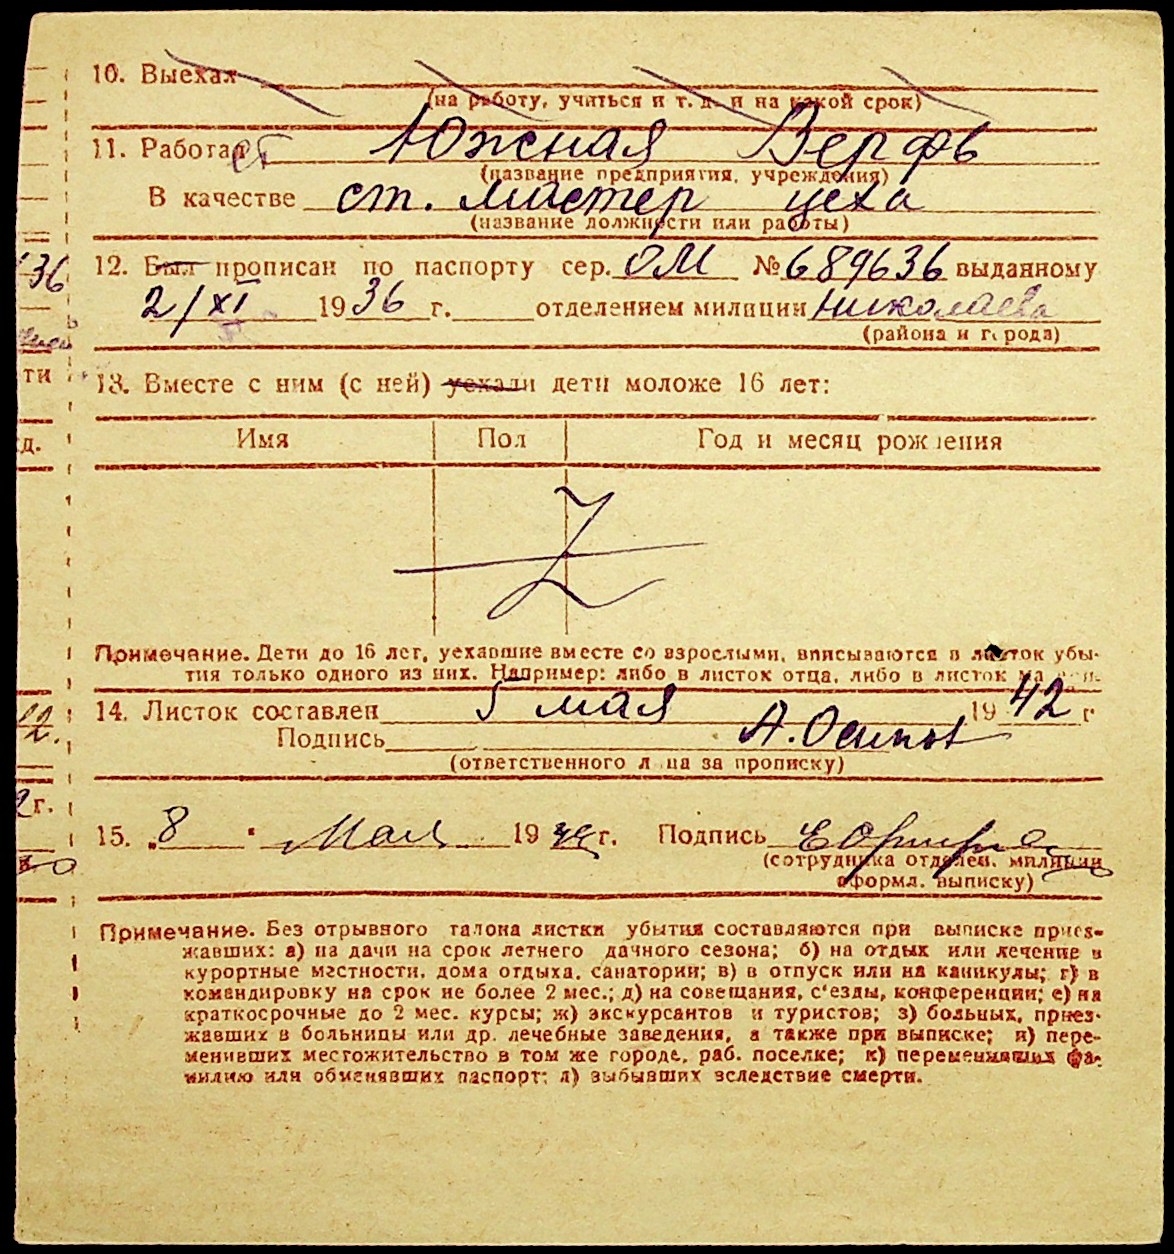 10. Выехал
(на работу, учиться и т. д. и на какой срок)
11. Работает Южная Верфь
(название предприятия, учреждения)
В качестве ст. мастер цеха
(название должности или работы)
12. Был прописан по паспорту сер. ОМ № 689636 выданному
2/XI 1936 г. отделением милиции Николаева
(района и города)
13. Вместе с ним (с ней) уехали дети моложе 16 лет:
Имя Пол Год и месяц рождения
Z
Примечание. Дети до 16 лет, уехавшие вместе со взрослыми, вписываются в листок убы-
тия только одного из них. Например: либо в листок отца, либо в листок
14. Листок составлен 5 мая 1942 г
Подпись А. Осипов
(ответственного лица за прописку)
15. 8 Мая 19 г. Подпись
(сотрудника отделен. милиции
оформл. выписку)
Примечание. Без отрывного талона листки убытия составляются при выписке приез-
жавших: а) на дачи на срок летнего дачного сезона; б) на отдых или лечение в
курортные местности, дома отдыха, санатории; в) в отпуск или на каникулы; г) в
командировку на срок не более 2 мес.; д) на совещания, с'езды, конференции; е) на
краткосрочные до 2 мес. курсы; ж) экскурсантов и туристов; з) больных, приез-
жавших в больницы или др. лечебные заведения, а также при выписке; и) пере-
менивших местожительство в том же городе, раб. поселке; к) переменивших фа-
милию или обменявших паспорт; л) выбывших вследствие смерти.